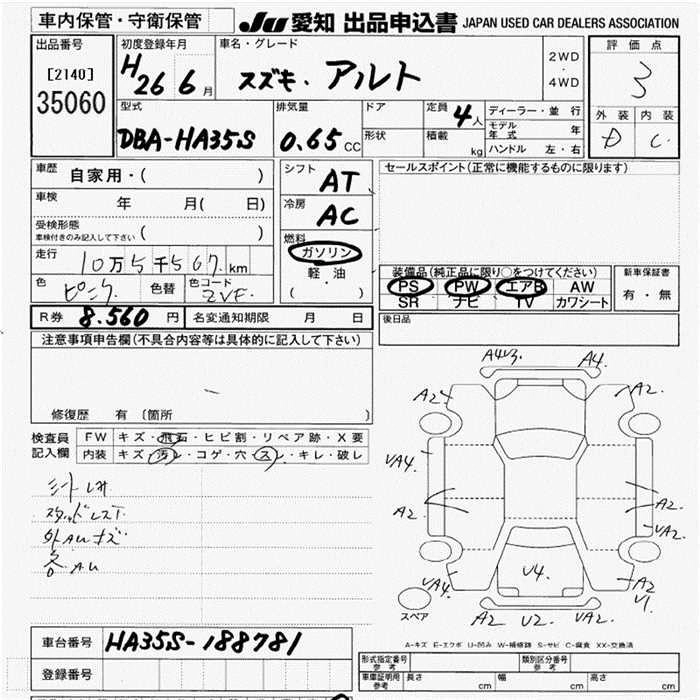 車内保管・守衛保管
JU 愛知 出品申込書 JAPAN USED CAR DEALERS ASSOCIATION
出品番号
[2140]
35060
初度登録年月
H26 6 月
車名・グレード
スズキ・アルト
2WD
・
4WD
評価点
3
外装 内装
D C
型式
DBA-HA35S
排気量
0.65 CC
ドア
形状
定員 4 人
積載 kg
ディーラー・並行
モデル年式 年
ハンドル 左・右
車歴 自家用・( )
車検 年 月( 日)
受検形態
車検付きのみ記入して下さい ( )
走行 10万5千567 km
色 ピンク 色替 色コード ZVF
シフト AT
冷房 AC
燃料
ガソリン
軽油
( )
セールスポイント(正常に機能するものに限ります)
装備品(純正品に限り○をつけてください)
PS PW エアB AW
SR ナビ TV カワシート
新車保証書
有・無
R券 8.560 円 名変通知期限 月 日
後日品
注意事項申告欄(不具合内容等は具体的に記入して下さい)
修復歴 有 〔箇所 〕
検査員記入欄
FW キズ・飛石・ヒビ割・リペア跡・X要
内装 キズ・汚レ・コゲ・穴・スレ・キレ・破レ
A4
A2
A2
VA4
A2
A2
VA2
VA4
V4
A2
V1
A2 U2 VA2
スペア
A-キズ E-エクボ U-凹み W-補修跡 S-サビ C-腐食 XX-交換済
車台番号 HA35S-188781
登録番号
形式指定番号 参考
類別区分番号 参考
車庫証明用 参考 長さ cm 幅 cm 高さ cm